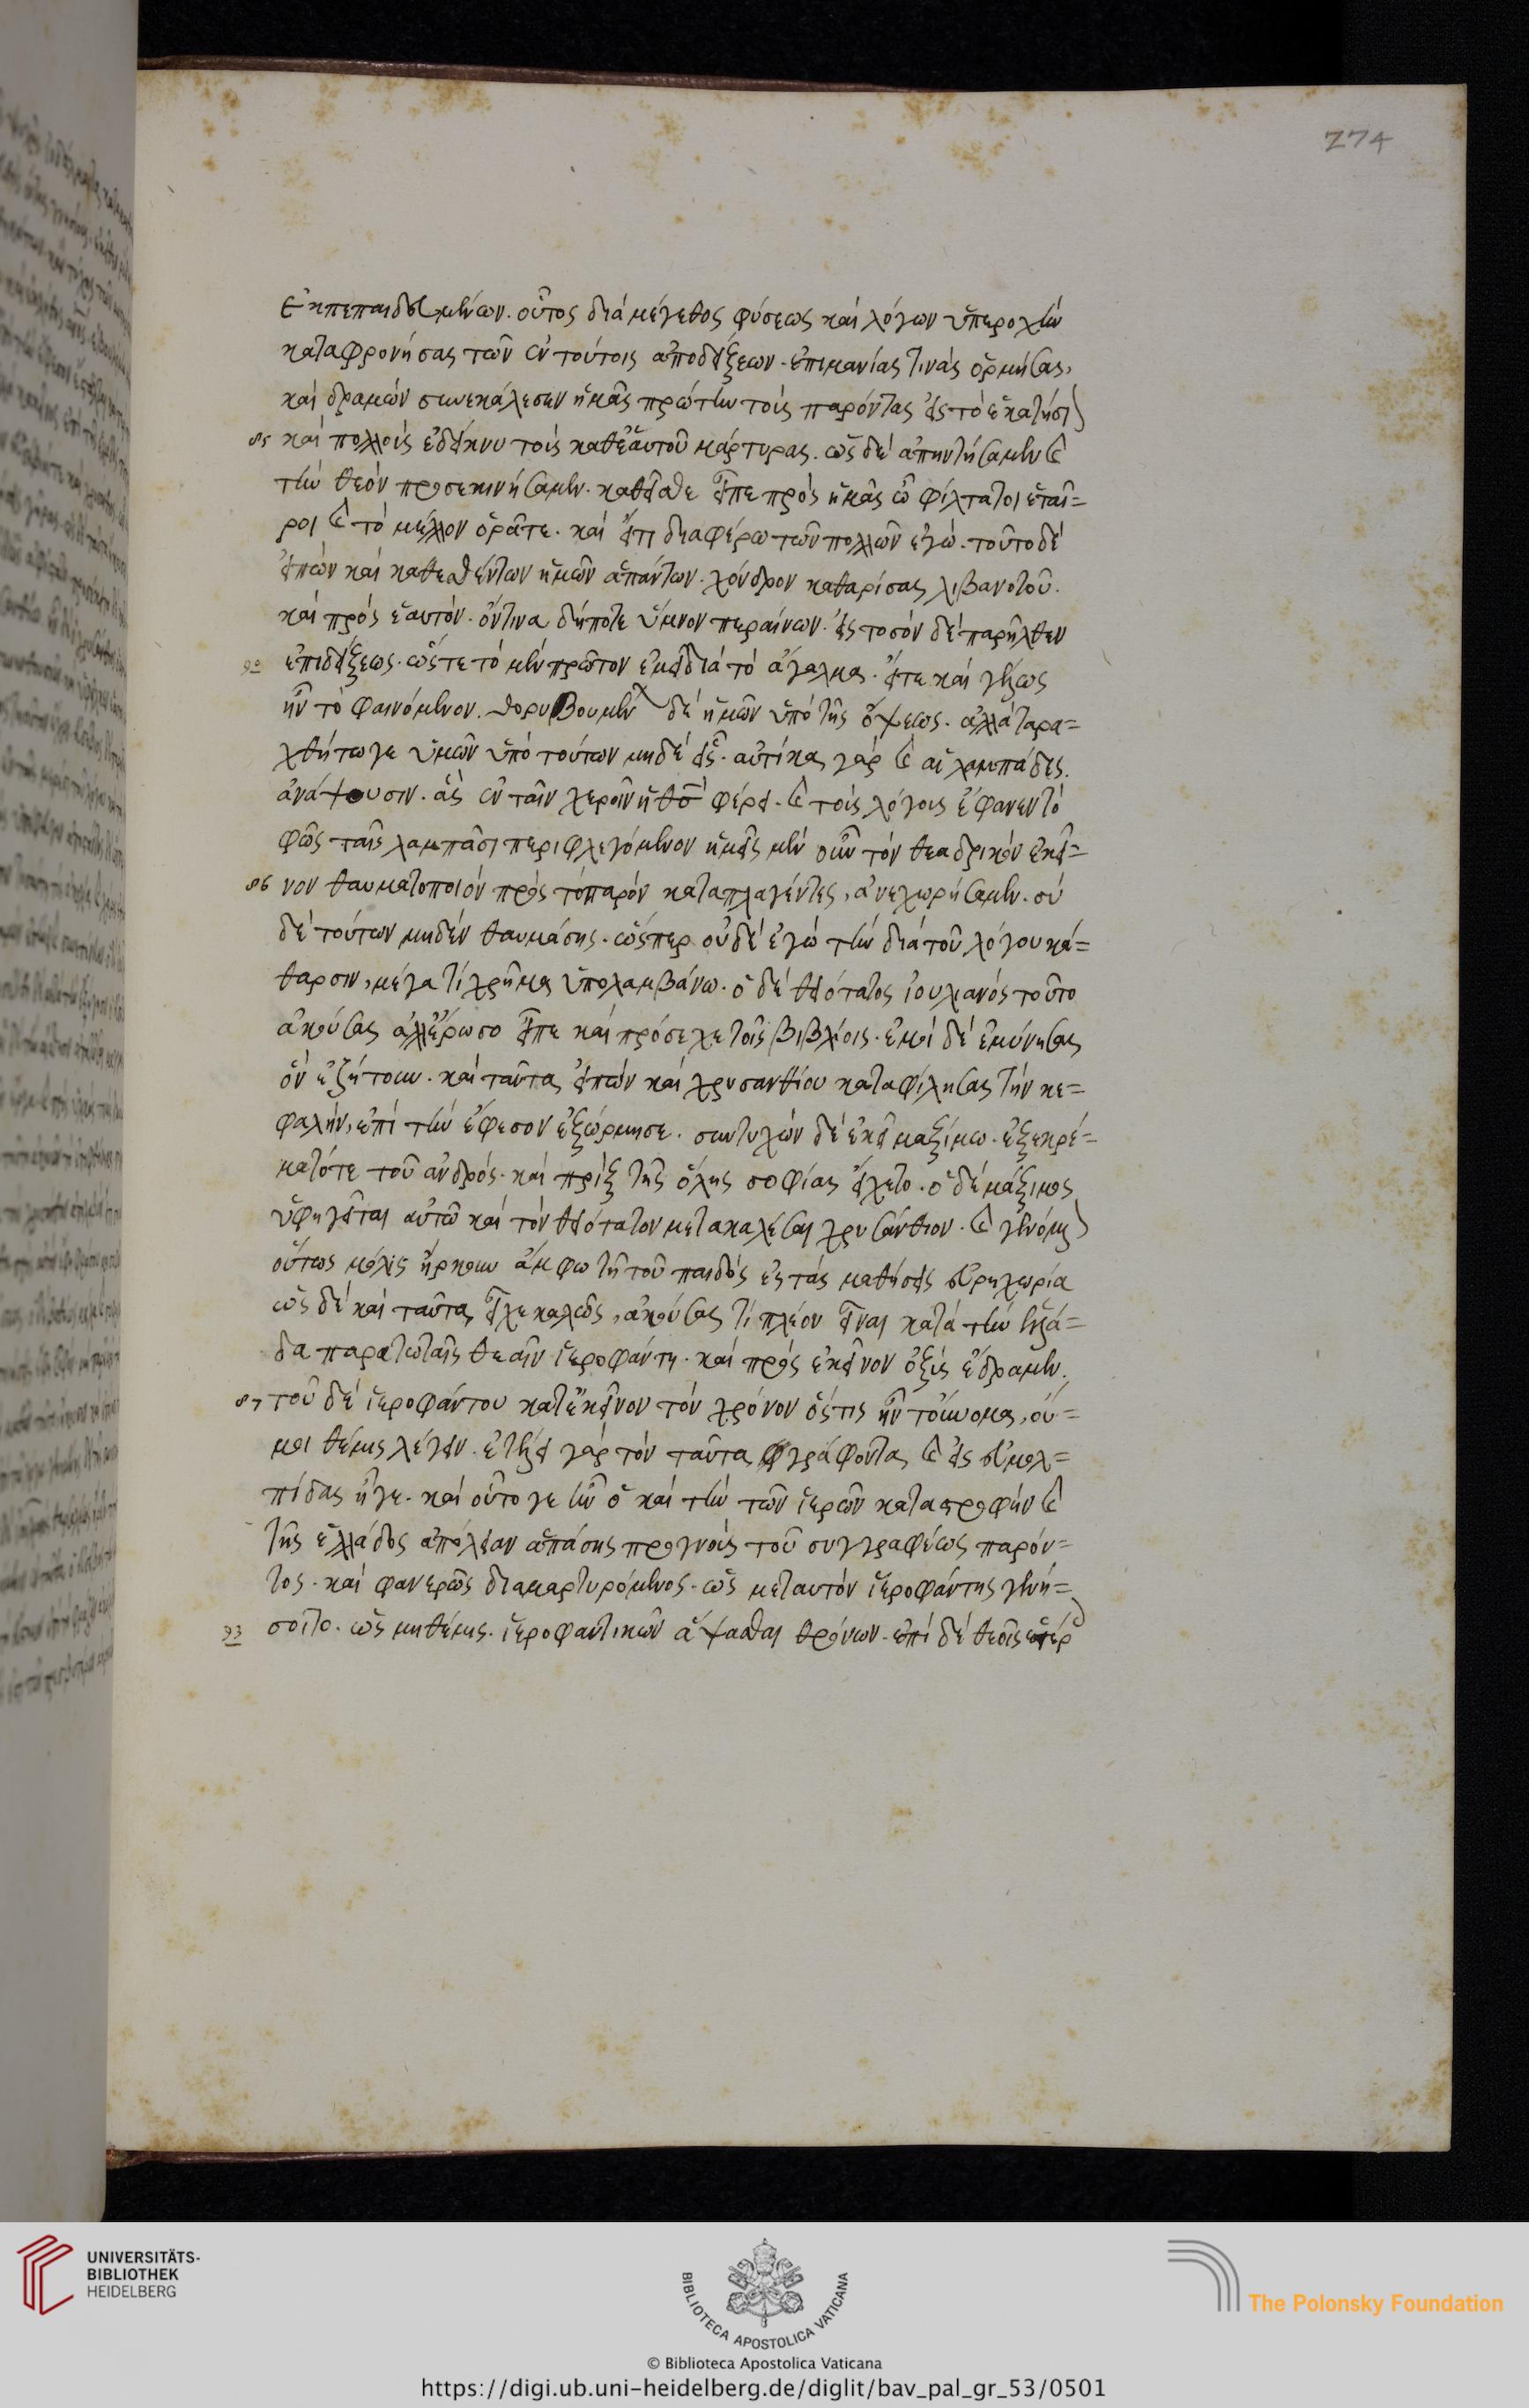 274
ἐκπεπαιδευμένων. οὗτος διὰ μέγεθος φύσεως καὶ λόγων ὑπεροχὴν
καταφρονήσας τῶν ἐν τούτοις ἀποδείξεων. ἐπὶ μανίας τινὰς ὁρμήσας,
καὶ δραμὼν συνεκάλεσεν ἡμᾶς πρώτην τοὺς παρόντας εἰς τὸ ἑκατήσιον
85 καὶ πολλοὺς ἐδείκνυ τοὺς καθ' ἑαυτοῦ μάρτυρας. ὡς δὲ ἀπηντήσαμεν καὶ
τὴν θεὸν προσεκυνήσαμεν. κάθησθε εἶπε πρὸς ἡμᾶς ὦ φίλτατοι ἑταῖ=
ροι καὶ τὸ μέλλον ὁρᾶτε. καὶ εἴ τι διαφέρω τῶν πολλῶν ἐγώ. τοῦτο δὲ
εἰπὼν καὶ καθεσθέντων ἡμῶν ἁπάντων. χόνδρον καθαρίσας λιβανοτοῦ.
καὶ πρὸς ἑαυτὸν. ὅντινα δήποτε ὕμνον περαίνων. εἰς τοσόν δὲ παρῆλθεν
90 ἐπιδείξεως. ὥστε τὸ μὲν πρῶτον ἐμειδία τὸ ἄγαλμα. εἶτε καὶ γέλως
ἦν τὸ φαινόμενον. θορυβουμένων δὲ ἡμῶν ὑπὸ τῆς ὄψεως. ἀλλὰ ταρα=
χθήτω γε ὑμῶν ὑπὸ τούτων μηδὲ εἷς. αὐτίκα γὰρ καὶ αἱ λαμπάδες.
ἀνάψουσιν. ἃς ἐν ταῖν χεροῖν ἡ θεὸς φέρει. καὶ τοὺς λόγους ἔφανεν τὸ
φῶς ταῖς λαμπᾶσι περιφλεγόμενον ἡμεῖς μὲν οὖν τὸν θεαδρικὸν ἐκεῖ=
86 νον θαυματοποιὸν πρὸς τὸ παρὸν καταπλαγέντες, ἀνεχωρήσαμεν. σὺ
δὲ τούτων μηδὲν θαυμάσης. ὥσπερ οὐδὲ ἐγὼ τὴν διὰ τοῦ λόγου κά=
θαρσιν, μέγα τί χρῆμα ὑπολαμβάνω. ὁ δὲ θειότατος ἰουλιανὸς τοῦτο
ἀκούσας ἀλλ' ἔρωσο εἶπε καὶ πρόσεχε τοῖς βιβλίοις. ἐμοὶ δὲ ἐμύνησας
ὃν ἐζήτουν. καὶ ταῦτα εἰπὼν καὶ χρυσανθίου καταφιλήσας τὴν κε=
φαλὴν, ἐπὶ τὴν ἔφεσον ἐξώρμησε. συντυχὼν δὲ ἐκεῖ μαξίμω. ἐξεκρέ=
ματότε τοῦ ἀνδρὸς. καὶ πρὶξ τῆς ὅλης σοφίας εἴχετο. ὁ δὲ μάξιμος
ὑφηγεῖται αὐτῶ καὶ τὸν θειότατον μετακαλέσαι χρυσάνθιον. καὶ γενόμενον
οὕτως μόλις ἤρκουν ἄμφω τῆ τοῦ παιδὸς ἐς τὰς μαθήσεις εὐρηχωρία
ὡς δὲ καὶ ταῦτα εἶχε καλῶς, ἀκούσας τί πλέον εἶναι κατὰ τὴν ἑλλά=
δα παρὰ τῶ ταῖς θεαῖν ἱεροφάντη. καὶ πρὸς ἐκεῖνον ὀξὺς ἔδραμεν.
87 τοῦ δὲ ἱεροφάντου κατ' ἐκεῖνον τὸν χρόνον ὅστις ἦν τοὔνομα, οὔ=
μοι θέμις λέγειν. ἐτέλει γὰρ τὸν ταῦτα γράφοντα, καὶ εἰς εὐμολ=
πίδας ἦγε. καὶ οὗτο γε ἦν ὁ καὶ τὴν τῶν ἱερῶν καταστροφὴν καὶ
τῆς ἑλλάδος ἀπόλειαν ἁπάσης προγνοὺς τοῦ συγγραφέως παρόν=
τος. καὶ φανερῶς διαμαρτυρόμενος. ὡς μεταυτὸν ἱεροφάντης γενή=
93 σοιτο. ὡς μὴ θέμις. ἱεροφαντικῶν ἅψασθαι θρόνων. ἐπὶ δὲ θεοῖς ἑτέρ
UNIVERSITÄTS-
BIBLIOTHEK
HEIDELBERG
BIBLIOTECA APOSTOLICA VATICANA
© Biblioteca Apostolica Vaticana
The Polonsky Foundation
https://digi.ub.uni-heidelberg.de/diglit/bav_pal_gr_53/0501